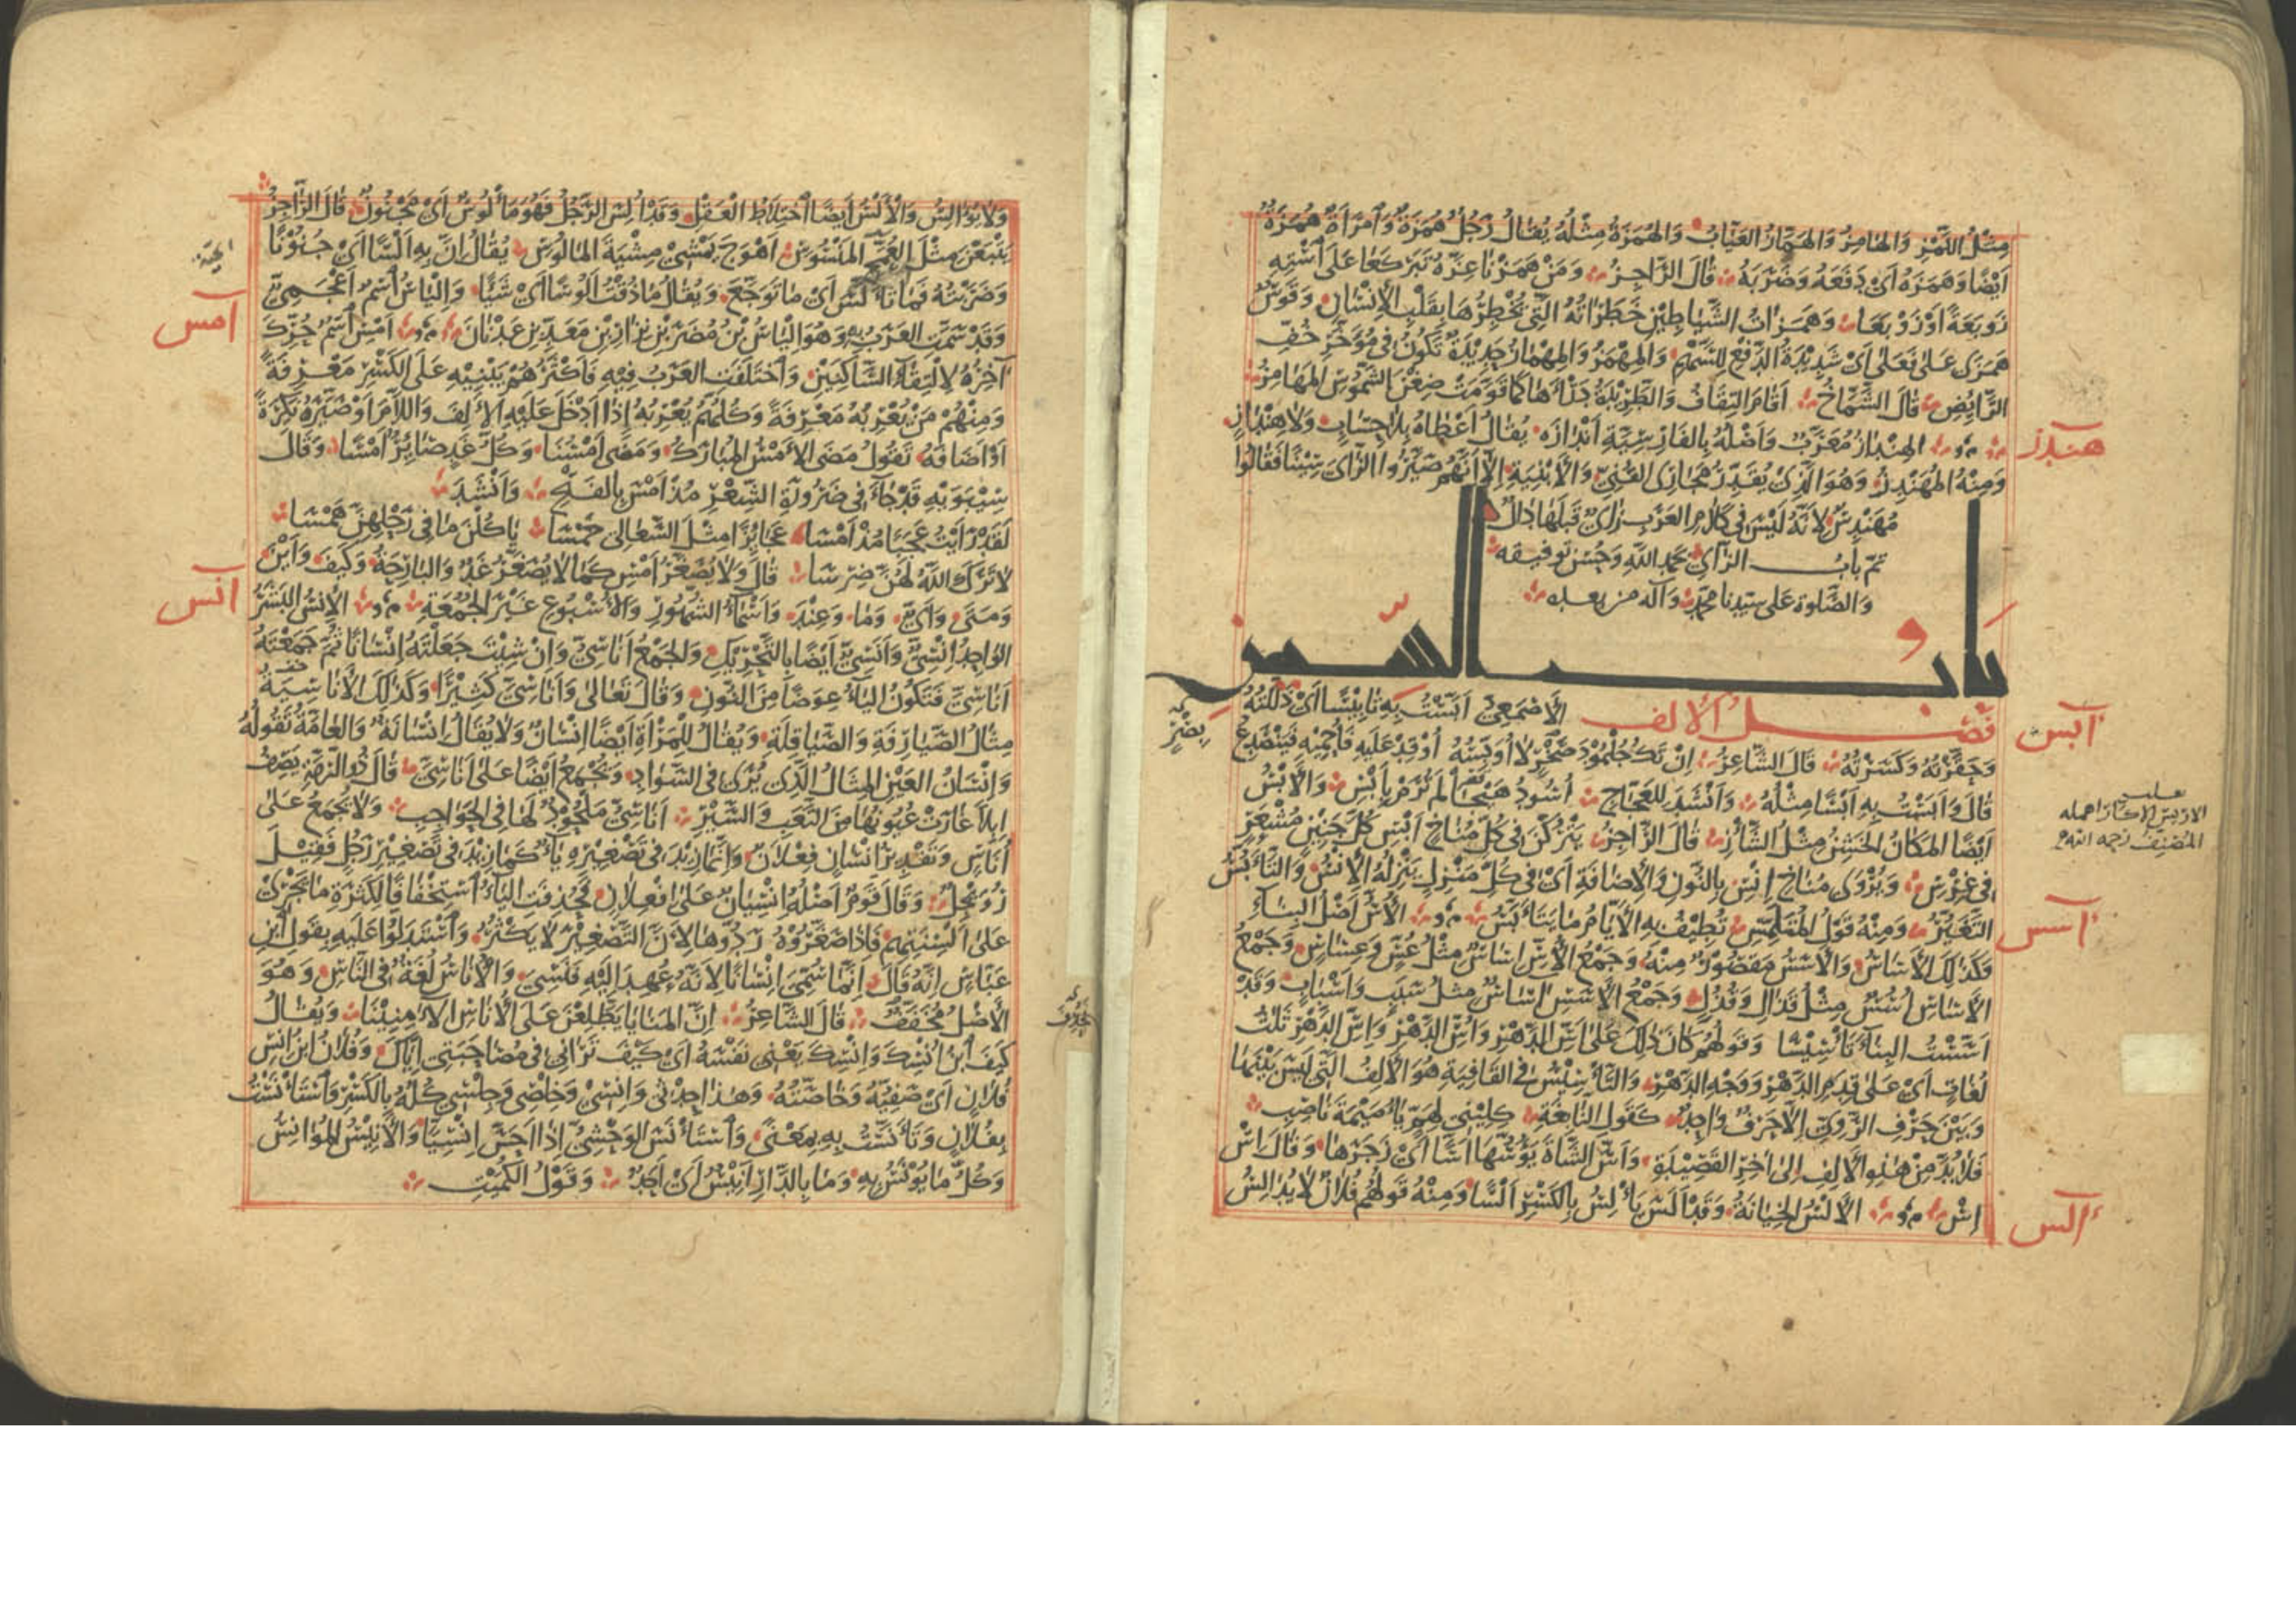 مِثْلُ اللَّمْزِ وَالهَامِزُ وَالهَمَّازُ العَيَّابُ وَالهُمَزَةُ مِثْلُهُ يُقَالُ رَجُلٌ هُمَزَةٌ وَٱمْرَأَةٌ هُمَزَةٌ
أَيْضًا وَهَمَزَهُ أَيْ دَفَعَهُ وَضَرَبَهُ قَالَ الرَّاجِزُ وَمَنْ هَمَزْنَا عِزَّهُ تَبَرْكَعَا عَلَى ٱسْتِهِ
زَوْبَعَةً أَوْ زَوْبَعَا وَهَمَزَاتُ الشَّيَاطِينِ خَطَرَاتُهُ الَّتِي يُخْطِرُهَا بِقَلْبِ الإِنْسَانِ وَقَوْسٌ
هَمَزَى عَلَى فَعَلَى أَيْ شَدِيدَةُ الدَّفْعِ لِلسَّهْمِ وَالمِهْمَزُ وَالمِهْمَازُ حَدِيدَةٌ تَكُونُ فِي مُؤَخَّرِ خُفِّ
الرَّائِضِ قَالَ الشَّمَّاخُ أَقَامَ الثِّقَافُ وَالطَّرِيدَةُ دَرْأَهَا كَمَا قَوَّمَتْ ضِغْنَ الشَّمُوسِ المَهَامِزُ
هندز
م و الهِنْدَازُ مُعَرَّبٌ وَأَصْلُهُ بِالفَارِسِيَّةِ أَنْدَازَهْ يُقَالُ أَعْطَاهُ بِلَا حِسَابٍ وَلَا هِنْدَازٍ
وَمِنْهُ المُهَنْدِزُ وَهُوَ الَّذِي يُقَدِّرُ مَجَارِيَ القُنِيِّ وَالأَبْنِيَةِ إِلَّا أَنَّهُمْ صَيَّرُوا الزَّايَ سِينًا فَقَالُوا
مُهَنْدِسٌ لِأَنَّهُ لَيْسَ فِي كَلَامِ العَرَبِ زَايٌ قَبْلَهَا دَالٌ
تمّ باب الزاي بحمد الله وحسن توفيقه
والصلوة على سيدنا محمد وآله من بعده
باب السين
فصل الألف
أبس
الأَصْمَعِيُّ أَبَّسْتُ بِهِ تَأْبِيسًا أَيْ ذَلَّلْتُهُ
وَحَقَّرْتُهُ وَكَسَرْتُهُ قَالَ الشَّاعِرُ إِنْ تَكُ جُلْمُودَ صَخْرٍ لَا أُوَبِّسُهُ أُوقِدْ عَلَيْهِ فَأُحْمِيهِ فَيَنْصَدِعُ
قَالَ وَأَبَسْتُ بِهِ أَبْسًا مِثْلُهُ وَأَنْشَدَ لِلعَجَّاجِ أُسُودُ هَيْجَا لَمْ تُرَمْ بِأَبْسِ وَالأَبْسُ
أَيْضًا المَكَانُ الخَشِنُ مِثْلُ الشَّأْزِ قَالَ الرَّاجِزُ يَتْرُكْنَ فِي كُلِّ مُنَاخٍ أَبْسِ كُلَّ جَنِينٍ مُشْعَرٍ
فِي غِرْسِ وَيُرْوَى مُنَاخِ إِنْسِ بِالنُّونِ وَالإِضَافَةِ أَيْ فِي كُلِّ مَنْزِلٍ يَنْزِلُهُ الإِنْسُ وَالتَّأَبُّسُ
أسس
التَّغَيُّرُ وَمِنْهُ قَوْلُ المُتَلَمِّسِ تُطِيفُ بِهِ الأَيَّامُ مَا يَتَأَبَّسُ م و الأُسُّ أَصْلُ البِنَاءِ
وَكَذَلِكَ الأَسَاسُ وَالأَسَسُ مَقْصُورٌ مِنْهُ وَجَمْعُ الأُسِّ إِسَاسٌ مِثْلُ عُسٍّ وَعِسَاسٍ وَجَمْعُ
الأَسَاسِ أُسُسٌ مِثْلُ قَذَالٍ وَقُذُلٍ وَجَمْعُ الأَسَسِ آسَاسٌ مِثْلُ سَبَبٍ وَأَسْبَابٍ وَقَدْ
أَسَّسْتُ البِنَاءَ تَأْسِيسًا وَقَوْلُهُمْ كَانَ ذَلِكَ عَلَى أَسِّ الدَّهْرِ وَأُسِّ الدَّهْرِ وَإِسِّ الدَّهْرِ ثَلَثُ
لُغَاتٍ أَيْ عَلَى قِدَمِ الدَّهْرِ وَوَجْهِ الدَّهْرِ وَالتَّأْسِيسُ فِي القَافِيَةِ هُوَ الأَلِفُ الَّتِي لَيْسَ بَيْنَهَا
وَبَيْنَ حَرْفِ الرَّوِيِّ إِلَّا حَرْفٌ وَاحِدٌ كَقَوْلِ النَّابِغَةِ كِلِينِي لِهَمٍّ يَا أُمَيْمَةَ نَاصِبِ
فَلَا بُدَّ مِنْ هَذِهِ الأَلِفِ إِلَى آخِرِ القَصِيدَةِ وَأَسَّ الشَّاةَ يَؤُسُّهَا أَسًّا أَيْ زَجَرَهَا وَقَالَ إِسْ
ألس
إِسْ م و الأَلْسُ الخِيَانَةُ وَقَدْ أَلَسَ يَأْلِسُ بِالكَسْرِ أَلْسًا وَمِنْهُ قَوْلُهُمْ فُلَانٌ لَا يُدَالِسُ
وَلَا يُؤَالِسُ وَالأَلْسُ أَيْضًا ٱخْتِلَاطُ العَقْلِ وَقَدْ أُلِسَ الرَّجُلُ فَهُوَ مَأْلُوسٌ أَيْ مَجْنُونٌ قَالَ الرَّاجِزُ
يَتْبَعْنَ مِثْلَ العُمَّجِ المَنْسُوسِ أَهْوَجَ يَمْشِي مِشْيَةَ المَأْلُوسِ يُقَالُ إِنَّ بِهِ أَلْسًا أَيْ جُنُونًا
وَضَرَبْتُهُ فَمَا تَأَلَّسَ أَيْ مَا تَوَجَّعَ وَيُقَالُ مَا ذُقْتُ أَلُوسًا أَيْ شَيْئًا وَإِلْيَاسُ ٱسْمٌ أَعْجَمِيٌّ
أمس
وَقَدْ سَمَّتِ العَرَبُ بِهِ وَهُوَ إِلْيَاسُ بْنُ مُضَرَ بْنِ نِزَارِ بْنِ مَعَدِّ بْنِ عَدْنَانَ م و أَمْسِ ٱسْمٌ حُرِّكَ
آخِرُهُ لِالْتِقَاءِ السَّاكِنَيْنِ وَٱخْتَلَفَتِ العَرَبُ فِيهِ فَأَكْثَرُهُمْ يَبْنِيهِ عَلَى الكَسْرِ مَعْرِفَةً
وَمِنْهُمْ مَنْ يُعْرِبُهُ مَعْرِفَةً وَكُلُّهُمْ يُعْرِبُهُ إِذَا أَدْخَلَ عَلَيْهِ الأَلِفَ وَاللَّامَ أَوْ صَيَّرَهُ نَكِرَةً
أَوْ أَضَافَهُ تَقُولُ مَضَى الأَمْسُ المُبَارَكُ وَمَضَى أَمْسُنَا وَكُلُّ غَدٍ صَائِرٌ أَمْسًا وَقَالَ
سِيبَوَيْهِ قَدْ جَاءَ فِي ضَرُورَةِ الشِّعْرِ مُذْ أَمْسَ بِالفَتْحِ وَأَنْشَدَ
لَقَدْ رَأَيْتُ عَجَبًا مُذْ أَمْسَا عَجَائِزًا مِثْلَ السَّعَالِي خَمْسَا يَأْكُلْنَ مَا فِي رَحْلِهِنَّ هَمْسَا
لَا تَرَكَ اللَّهُ لَهُنَّ ضِرْسَا قَالَ وَلَا يُصَغَّرُ أَمْسِ كَمَا لَا يُصَغَّرُ غَدٌ وَالبَارِحَةُ وَكَيْفَ وَأَيْنَ
أنس
وَمَتَى وَأَيٌّ وَمَا وَعِنْدَ وَأَسْمَاءُ الشُّهُورِ وَالأُسْبُوعِ غَيْرَ الجُمُعَةِ م و الإِنْسُ البَشَرُ
الوَاحِدُ إِنْسِيٌّ وَأَنَسِيٌّ أَيْضًا بِالتَّحْرِيكِ وَالجَمْعُ أَنَاسِيُّ وَإِنْ شِئْتَ جَعَلْتَهُ إِنْسَانًا ثُمَّ جَمَعْتَهُ
أَنَاسِيَّ فَتَكُونُ اليَاءُ عِوَضًا مِنَ النُّونِ وَقَالَ تَعَالَى وَأَنَاسِيَّ كَثِيرًا وَكَذَلِكَ الأَنَاسِيَةُ
مِثَالُ الصَّيَارِفَةِ وَالصَّيَاقِلَةِ وَيُقَالُ لِلْمَرْأَةِ أَيْضًا إِنْسَانٌ وَلَا يُقَالُ إِنْسَانَةٌ وَالعَامَّةُ تَقُولُهُ
وَإِنْسَانُ العَيْنِ المِثَالُ الَّذِي يُرَى فِي السَّوَادِ وَيُجْمَعُ أَيْضًا عَلَى أَنَاسِيَّ قَالَ ذُو الرُّمَّةِ يَصِفُ
إِبِلًا غَارَتْ عُيُونُهَا مِنَ التَّعَبِ وَالسَّيْرِ أَنَاسِيُّ مَلْحُودٌ لَهَا فِي الحَوَاجِبِ وَلَا يُجْمَعُ عَلَى
أُنَاسٍ وَتَقْدِيرُ إِنْسَانٍ فِعْلَانٌ وَإِنَّمَا زِيدَ فِي تَصْغِيرِهِ يَاءٌ كَمَا زِيدَ فِي تَصْغِيرِ رَجُلٍ فَقِيلَ
رُوَيْجِلٌ وَقَالَ قَوْمٌ أَصْلُهُ إِنْسِيَانٌ عَلَى إِفْعِلَانٍ فَحُذِفَتِ اليَاءُ ٱسْتِخْفَافًا لِكَثْرَةِ مَا يَجْرِي
عَلَى أَلْسِنَتِهِمْ فَإِذَا صَغَّرُوهُ رَدُّوهَا لِأَنَّ التَّصْغِيرَ لَا يَكْثُرُ وَٱسْتَدَلُّوا عَلَيْهِ بِقَوْلِ ٱبْنِ
عَبَّاسٍ إِنَّهُ قَالَ إِنَّمَا سُمِّيَ إِنْسَانًا لِأَنَّهُ عُهِدَ إِلَيْهِ فَنَسِيَ وَالأُنَاسُ لُغَةٌ فِي النَّاسِ وَهُوَ
الأَصْلُ مُخَفَّفٌ قَالَ الشَّاعِرُ إِنَّ المَنَايَا يَطَّلِعْنَ عَلَى الأُنَاسِ الآمِنِينَا وَيُقَالُ
كَيْفَ ٱبْنُ أُنْسِكَ وَإِنْسِكَ يَعْنِي نَفْسَهُ أَيْ كَيْفَ تَرَانِي فِي مُصَاحَبَتِي إِيَّاكَ وَفُلَانٌ ابْنُ أُنْسِ
فُلَانٍ أَيْ صَفِيُّهُ وَخَاصَّتُهُ وَهَذَا حِدْثِي وَإِنْسِي وَخِلْصِي وَجِلْسِي كُلُّهُ بِالكَسْرِ وَٱسْتَأْنَسْتُ
بِفُلَانٍ وَتَأَنَّسْتُ بِهِ بِمَعْنًى وَٱسْتَأْنَسَ الوَحْشِيُّ إِذَا أَحَسَّ إِنْسِيًّا وَالأَنِيسُ المُؤَانِسُ
وَكُلُّ مَا يُؤْنَسُ بِهِ وَمَا بِالدَّارِ أَنِيسٌ أَيْ أَحَدٌ وَقَوْلُ الكُمَيْتِ